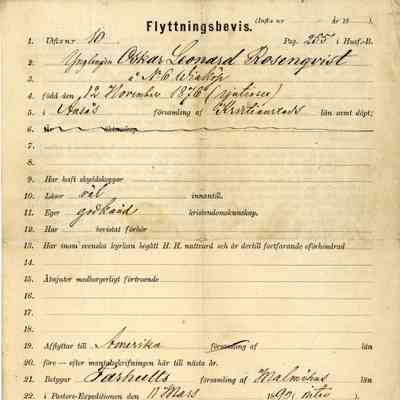 Flyttningsbevis. (Insta nr år 18 ).
1. Utfs:nr 10. Pag. 255 i Husf.-B.
2. Ynglingen Oskar Leonard Rosenqvist
3. å N:o 6
4. född den 12 November 1876 (
5. i församling af Kristianstads län samt döpt;
6.
7.
8.
9. Har haft skyddskoppor
10. Läser väl innantill.
11. Eger godkänd kristendomskunskap.
12. Har bevistat förhör
13. Har inom svenska kyrkan begått H. H. nattvard och är dertill fortfarande oförhindrad
14.
15. Åtnjuter medborgerligt förtroende
16.
17.
18.
19. Afflyttar till Amerika församling af län
20. före — efter mantalsskrifningen här till nästa år.
21. Betygar Farhults församling af Malmöhus län
22. i Pastors-Expeditionen den Mars